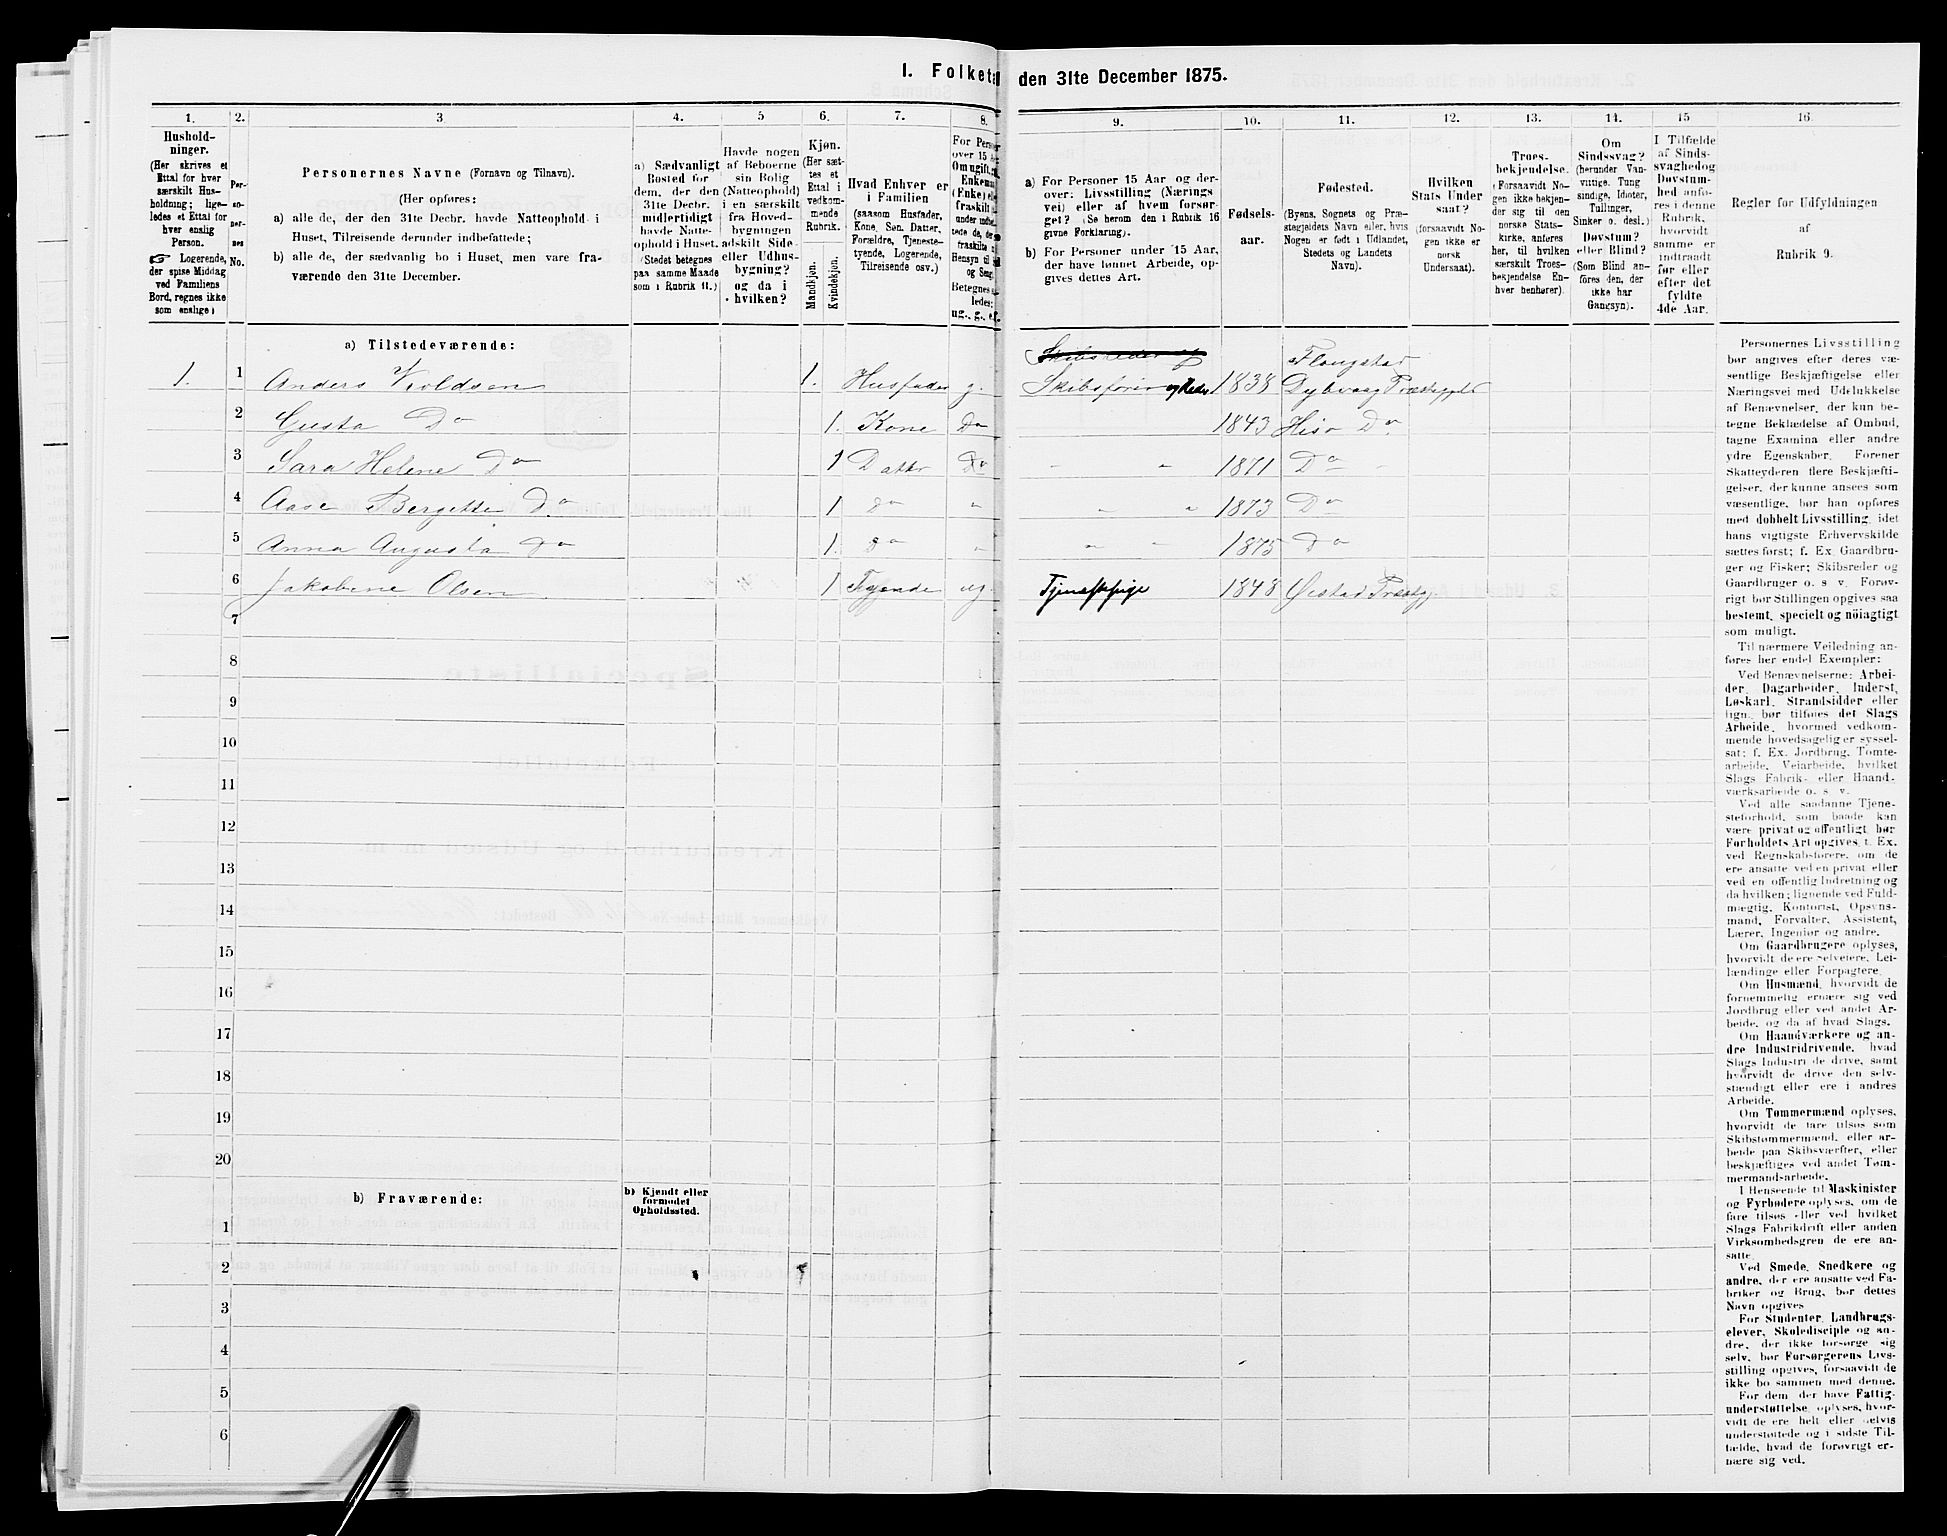 I. Folket den 31te December 1875.
1.
Hushold-
ninger.
(Her skrives et
Ettal for hver
særskilt Hus-
holdning; lige-
ledes et Ettal for
hver enslig
Person.
☞ Logerende,
der spise Middag
ved Familiens
Bord, regnes ikke
som enslige)
2.
Per-
so-
ner-
nes
No.
3
Personernes Navne (Fornavn og Tilnavn).
(Her opføres:
a) alle de, der den 31te Decbr. havde Natteophold i
Huset, Tilreisende derunder indbefattede;
b) alle de, der sædvanlig bo i Huset, men vare fra-
værende den 31te December.
4.
a) Sædvanligt
Bosted for
dem, der den
31te Decbr.
midlertidigt
havde Natte-
ophold i Huset.
(Stedet betegnes
paa samme Maade
som i Rubrik 11.)
5
Havde nogen
af Beboerne
sin Bolig
(Natteophold)
i en særskilt
fra Hoved-
bygningen
adskilt Side-
eller Udhus-
bygning?
og da i
hvilken?
6.
Kjøn.
(Her sæt-
tes et
Ettal i
vedkom-
mende
Rubrik.
Mandkjøn.
Kvindekjøn.
7.
Hvad Enhver er
i Familien
(saasom Husfader,
Kone, Søn, Datter,
Forældre, Tjeneste-
tyende, Logerende,
Tilreisende osv.)
8.
For Perso
over 15 A
Om ugift,
Enkema
(Enke) el
fraskilt
ug., g., e.f.
9.
a) For Personer 15 Aar og der-
over: Livsstilling (Nærings
vei) eller af hvem forsør-
get? (Se herom den i Rubrik 16
givne Forklaring).
b) For Personer under 15 Aar,
der have lønnet Arbeide, op-
gives dettes Art.
10.
Fødsels-
aar.
11.
Fødested.
(Byens, Sognets og Præ-
stegjeldets Navn eller, hvis
Nogen er født i Udlandet,
Stedets og Landets
Navn).
12.
Hvilken
Stats Under
saat?
(forsaavidt No-
gen ikke er
norsk
Undersaat).
13.
Troes-
bekjendelse.
(Forsaavidt No-
gen ikke bekjen-
der sig til den
norske Stats-
kirke, anføres
her, til hvilken
særskilt Troes-
bekjendelse En-
hver henhører).
14.
Om
Sindssvag?
(herunder Van-
vittige, Tung
sindige, Idioter,
Tullinger,
Sinker o. desl.)
Døvstum?
eller Blind?
(Som Blind an-
føres den, der
ikke har
Gangsyn).
15
I Tilfælde
af Sinds-
svaghed og
Døvstum-
hed anfø-
res i denne
Rubrik,
hvorvidt
samme er
indtraadt
før eller
efter det
fyldte
4de Aar.
16.
Regler for Udfyldningen
af
Rubrik 9.
a) Tilstedeværende:
Skibsreder og
Flougstad
1. 1 Anders Kioldsen 1. Husfader g. Skibsfører og Reder 1838 Dybvaag Præstegjeld
2 Gusta Do 1. Kone Do 1843 Hisø Do
3 Sara Helene Do 1 Datter Do " " 1871 Do
4 Aase Bergette Do 1 do " " " 1873 Do
5 Anna Augusta Do 1. do " " " 1875 Do
6 Jakobine Olsen 1 Tyende ug. Tjenestepige 1848 Øiestad Præstgj.
7
8
9
10
11
12
13
14
15
16
17
18
19
20
b) Fraværende:
b) Kjendt eller
formodet
Opholdssted.
1
2
3
4
5
6
Personernes Livsstilling
bør angives efter deres væ-
sentlige Beskjæftigelse eller
Næringsvei med Udelukkelse
af Benævnelser, der kun be-
tegne Beklædelse af Ombud,
tagne Examina eller andre
ydre Egenskaber. Forener
Skatteyderen flere Beskjæfti-
gelser, der kunne ansees som
væsentlige, bør han opføres
med dobbelt Livsstilling, idet
hans vigtigste Erhvervskilde
sættes først; f. Ex. Gaardbru-
ger og Fisker; Skibsreder og
Gaardbruger o. s. v. Forøv-
rigt bør Stillingen opgives saa
bestemt, specielt og nøiagtigt
som muligt.
Til nærmere Veiledning an-
føres her endel Exempler:
Ved Benævnelserne: Arbei-
der, Dagarbeider, Inderst,
Løskarl, Strandsidder eller
lign. bør tilføies det Slags
Arbeide, hvormed vedkom-
mende hovedsagelig er syssel-
sat; f. Ex. Jordbrug, Tomte-
arbeide, Veiarbeide, hvilket
Slags Fabrik- eller Haand-
værksarbeide o. s. v.
Ved alle saadanne Tjene-
steforhold, som baade kan
være privat og offentligt, bør
Forholdets Art opgives, t. Ex.
ved Regnskabsførere, om de
ere ansatte ved en privat eller
ved en offentlig Indretning og
da hvilken; lignende ved Fuld-
mægtig, Kontorist, Opsyns-
mand, Forvalter, Assistent,
Lærer, Ingeniør og andre.
Om Gaardbrugere oplyses,
hvorvidt de ere Selveiere, Lei-
lændinge eller Forpagtere.
Om Husmænd, hvorvidt de
fornemmelig ernære sig ved
Jordbrug eller ved andet Ar-
beide, og da af hvad Slags.
Om Haandværkere og an-
dre Industridrivende, hvad
Slags Industri de drive, samt
hvorvidt de drive den selv-
stændigt eller ere i andres
Arbeide.
Om Tømmermænd oplyses,
hvorvidt de fare tilsøs som
Skibstømmermænd, eller ar-
beide paa Skibsværfter, eller
beskjæftiges ved andet Tøm-
mermandsarbeide.
I Henseende til Maskinister
og Fyrbødere oplyses, om de
fare tilsøs eller ved hvilket
Slags Fabrikdrift eller anden
Virksomhedsgren de ere an-
satte.
Ved Smede, Snedkere og
andre, der ere ansatte ved Fa-
briker og Brug, bør dettes
Navn opgives
For Studenter, Landbrugs-
elever, Skoledisciple og an-
dre, der ikke forsørge sig
selv, bør Forsørgerens Livs-
stilling opgives, forsaavidt de
ikke bo sammen med denne.
For dem, der have Fattig-
understøttelse, oplyses, hvor-
vidt de ere helt eller delvis
understøttede og i sidste Til-
fælde, hvad de forøvrigt er-
nære sig ved.